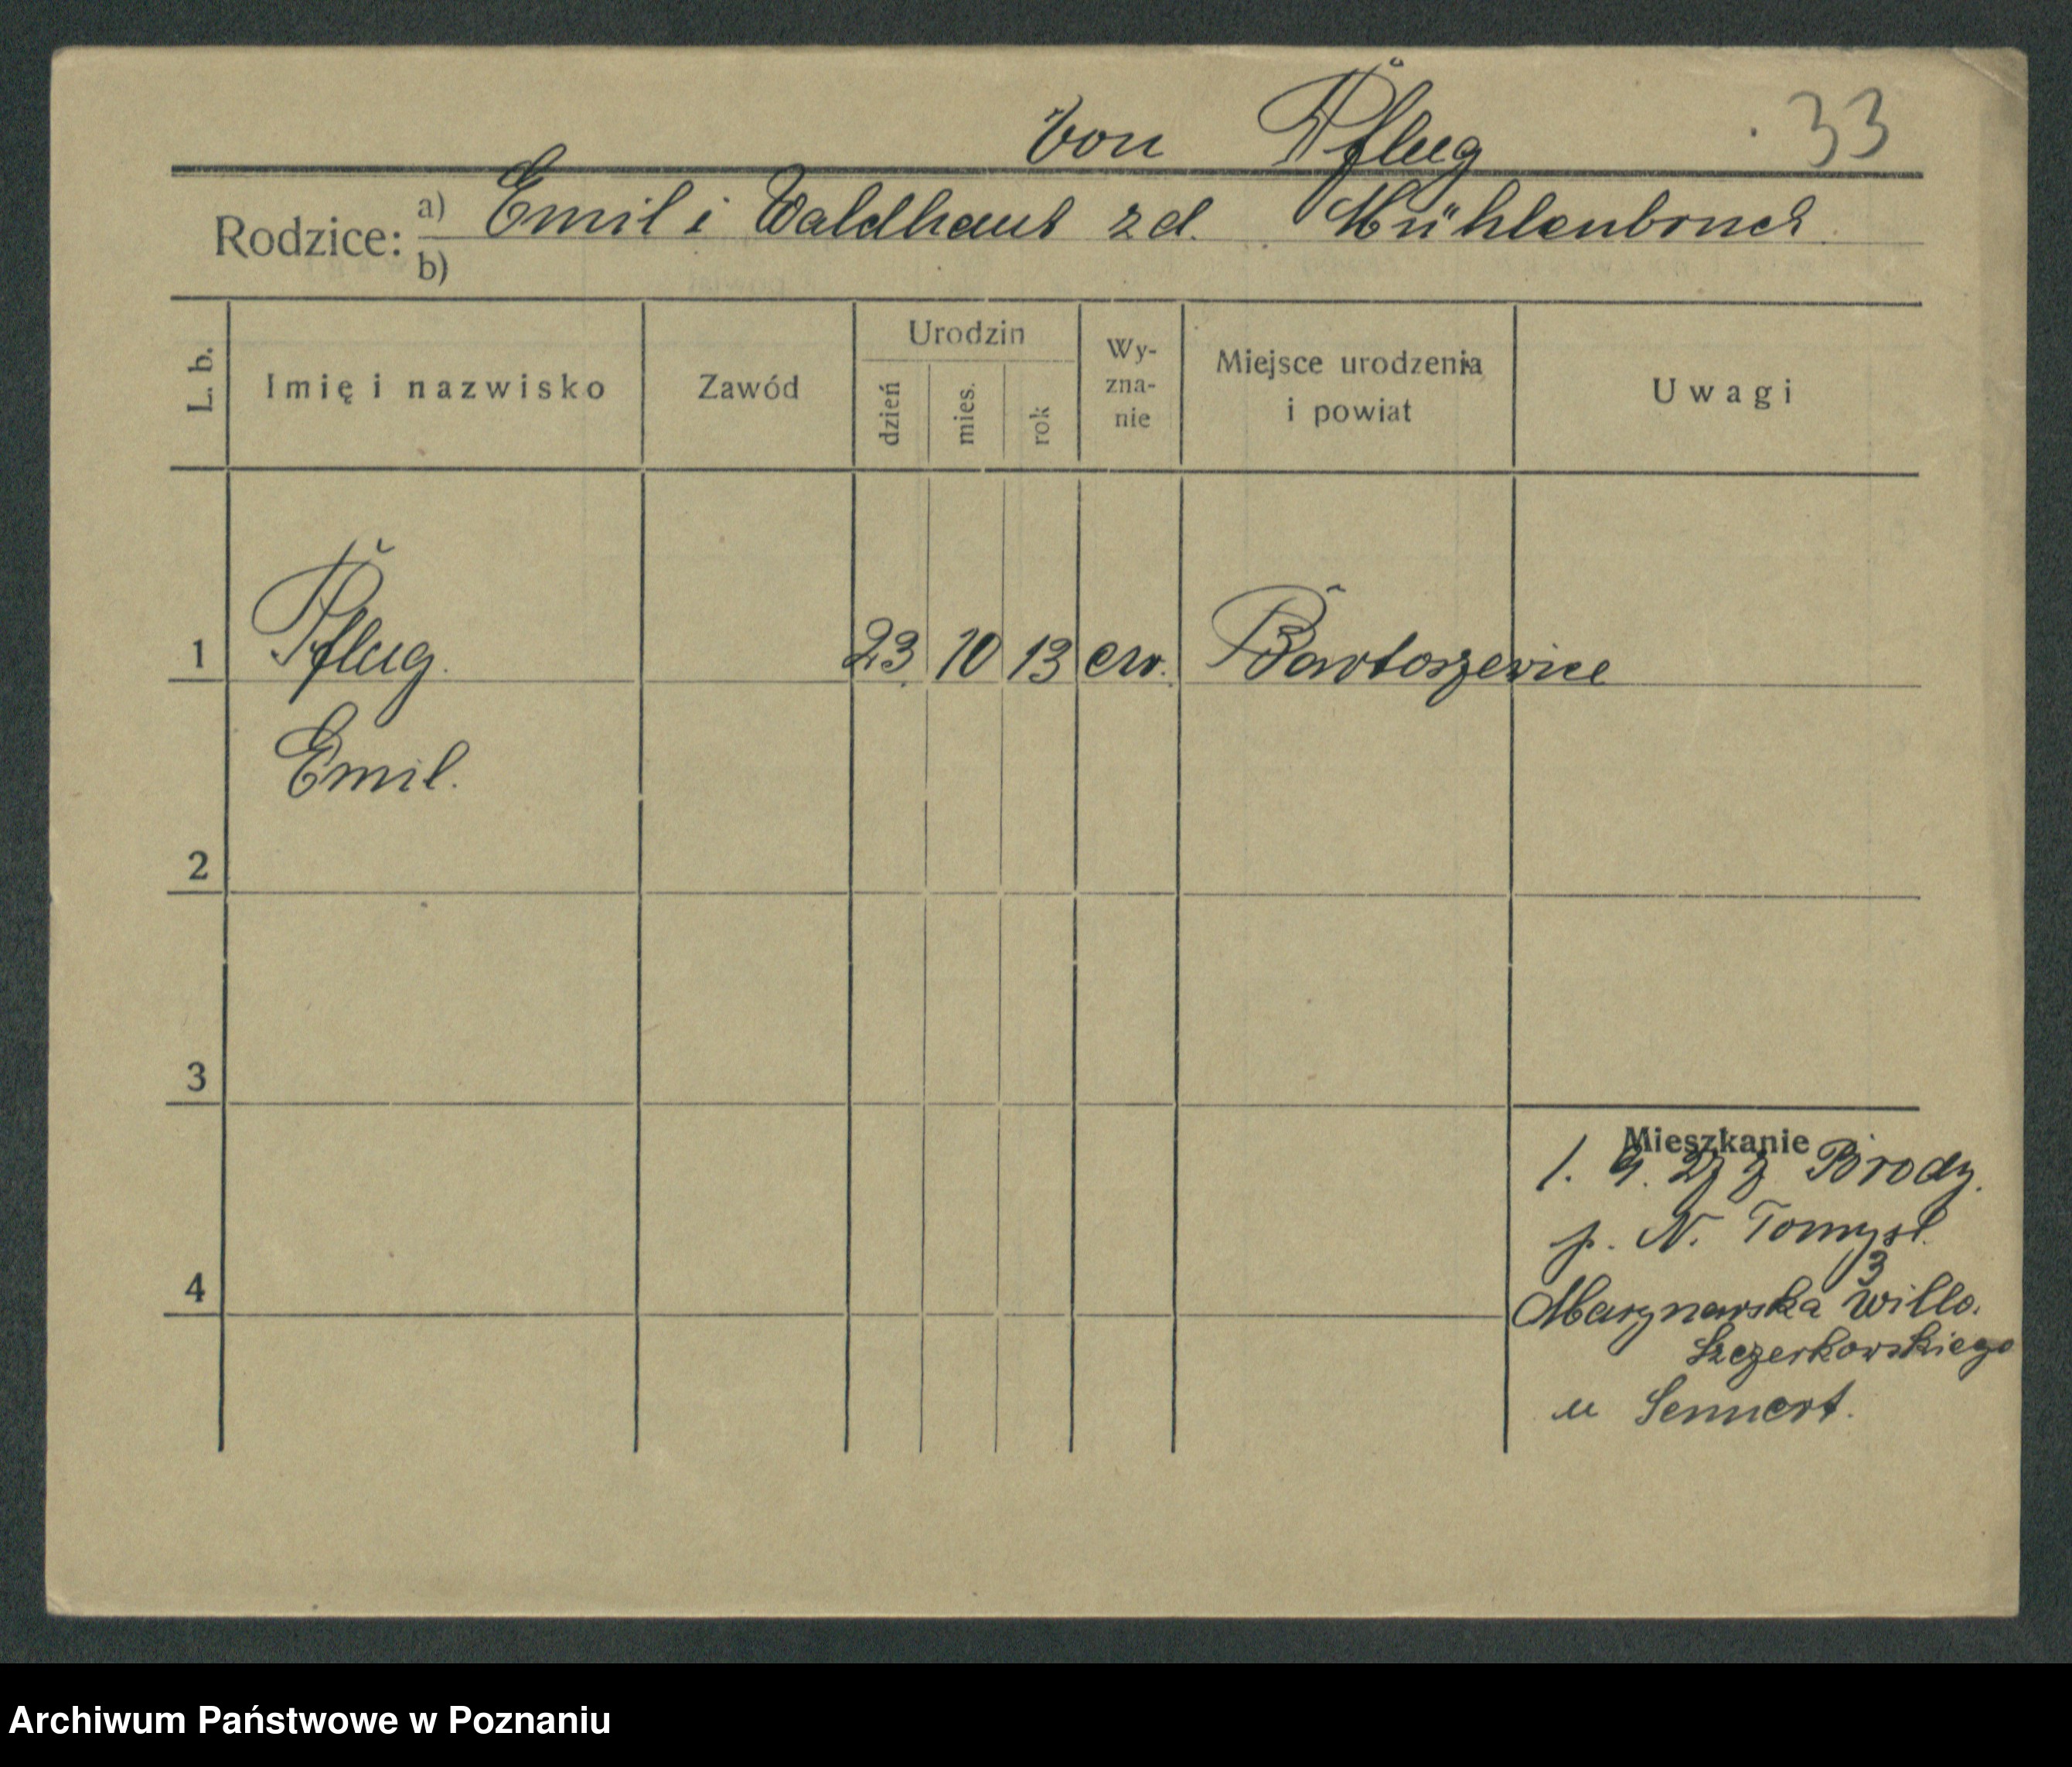 von Pflug . 33
Rodzice: a) Emil i Waldhaus zd. Mühlenbruch
b)
L. b. Imię i nazwisko Zawód Urodzin dzień mies. rok Wy-zna-nie Miejsce urodzenia i powiat Uwagi
1 Pflug 23 10 13 ew. Bartoszewice
Emil.
2
3
Mieszkanie
1. 9. 27 z Brody.
p. N. Tomyśl.
4
3
Marynarska willa.
Szczerkowskiego
u Sennert.
Archiwum Państwowe w Poznaniu